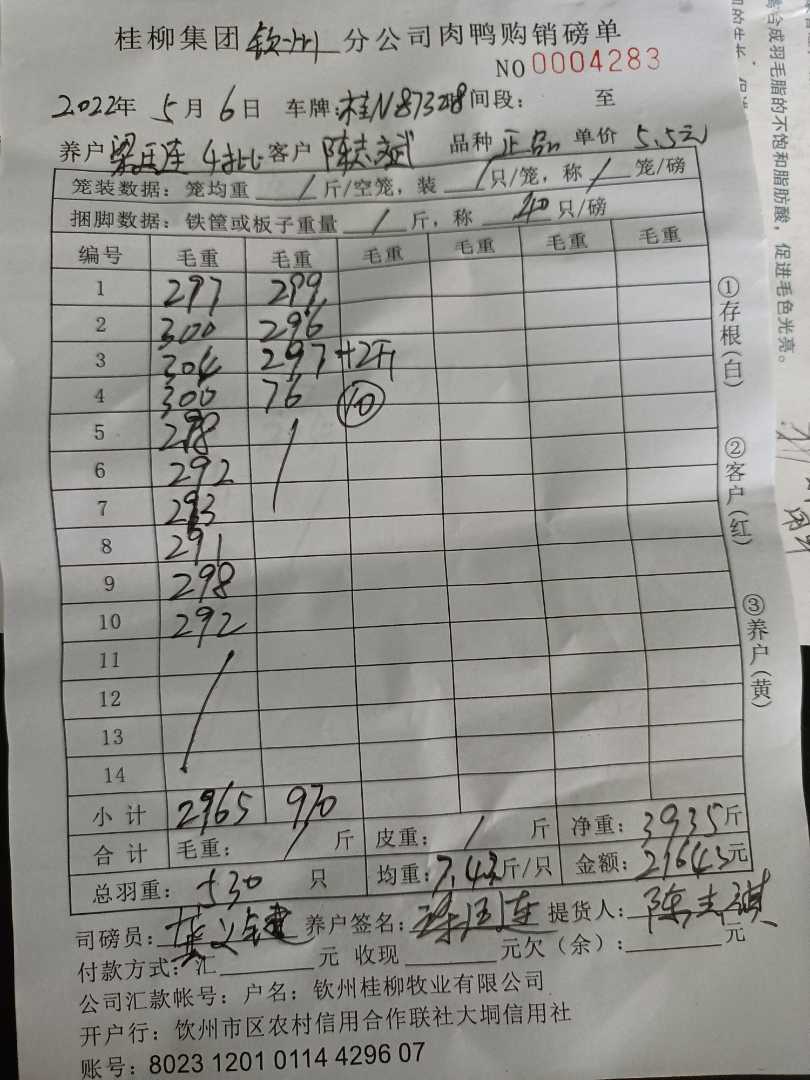 桂柳集团 钦州 分公司肉鸭购销磅单
NO 0004283
2022年 5月 6日 车牌: 桂N87328 时间段: 至
养户 梁廷连 4批 客户 陈志斌 品种 正品 单价 5.5元
笼装数据: 笼均重 / 斤/空笼, 装 / 只/笼, 称 / 笼/磅
捆脚数据: 铁筐或板子重量 / 斤, 称 40 只/磅
编号 毛重 毛重 毛重 毛重 毛重 毛重
1 297 299
2 300 296
3 304 297 +2斤
4 300 76 ⑩
5 298 /
6 292
7 293
8 291
9 298
10 292
11 /
12
13
14
小计 2965 970
合计 毛重: / 斤 皮重: / 斤 净重: 3935斤
总羽重: 530 只 均重: 7.43斤/只 金额: 21643元
司磅员: 养户签名: 提货人: 陈志
付款方式: 汇 元 收现 元欠(余): 元
公司汇款帐号: 户名: 钦州桂柳牧业有限公司
开户行: 钦州市区农村信用合作联社大垌信用社
账号: 8023 1201 0114 4296 07
①存根(白)
②客户(红)
③养户(黄)
合成羽毛脂的不饱和脂肪酸, 促进毛色光亮。